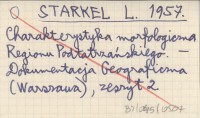 STARKEL L. 1957.
Charakterystyka morfologiczna
Regionu Podtatrzańskiego. —
Dokumentacja Geograficzna
(Warszawa), zeszyt 2